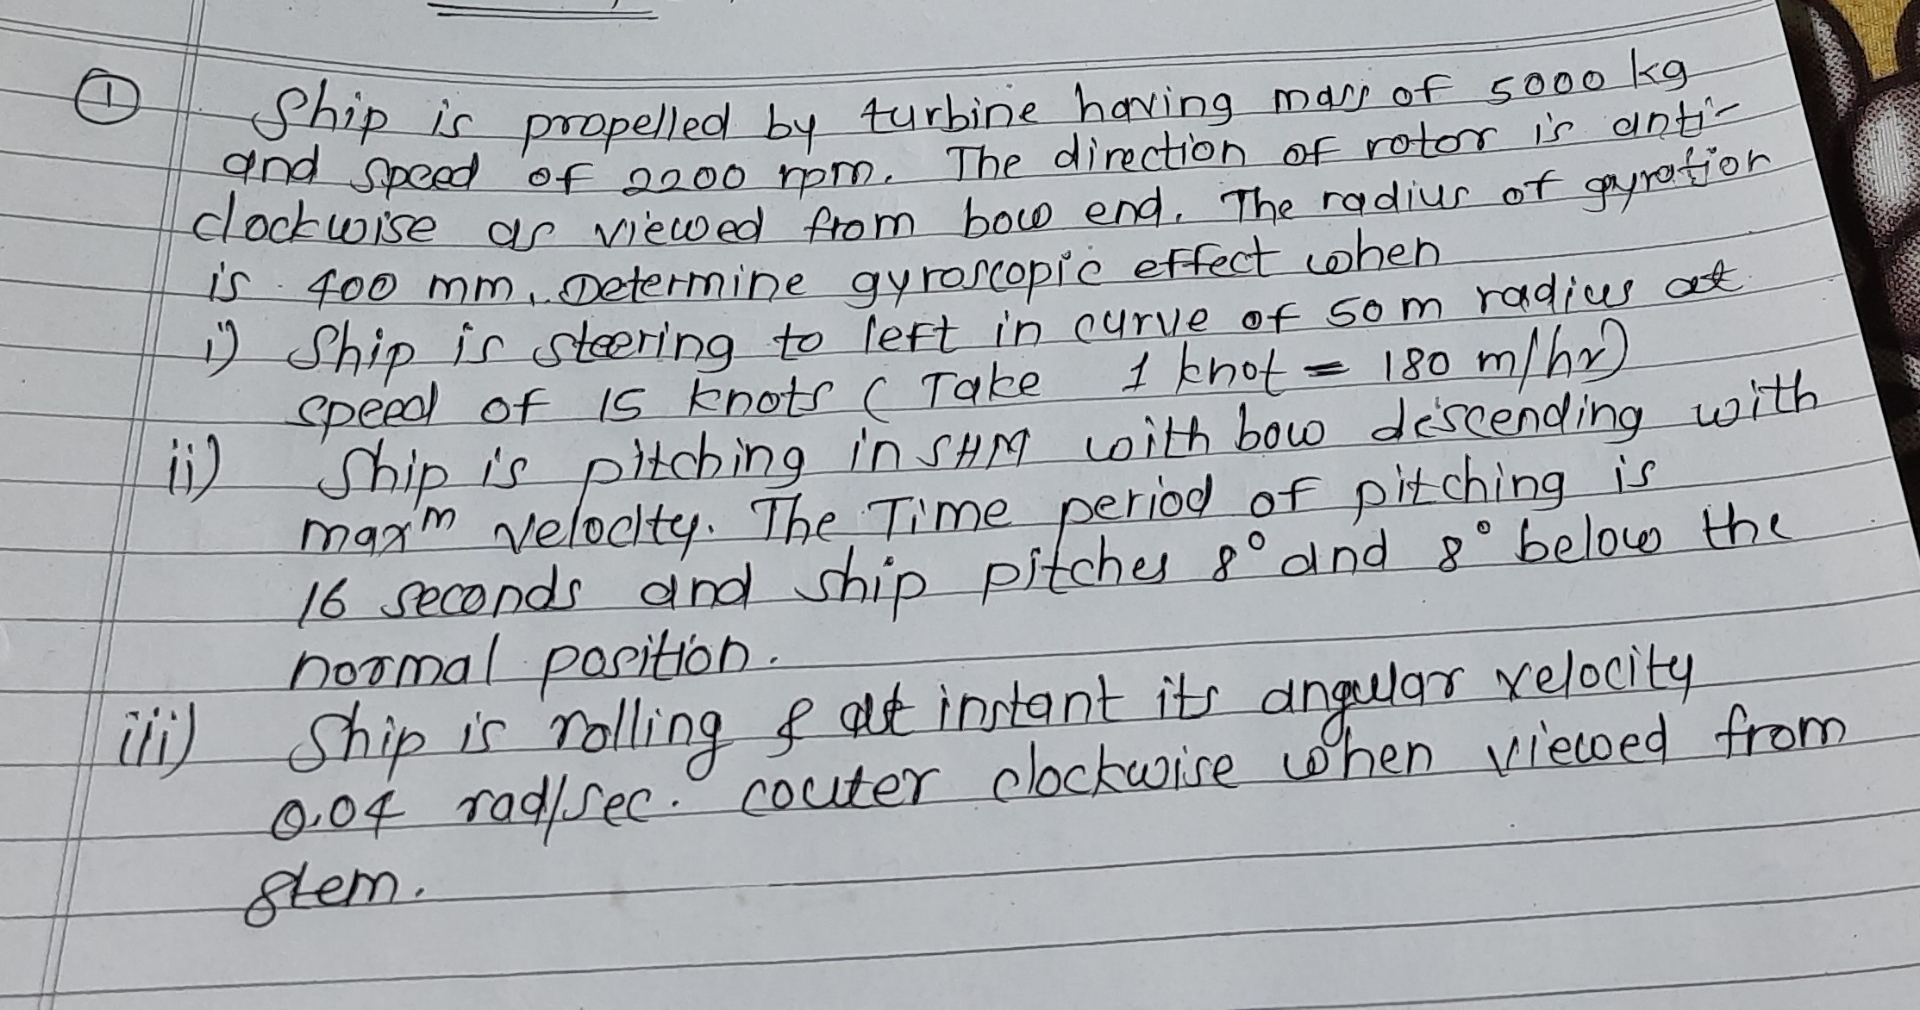 ① Ship is propelled by turbine having mass of 5000 kg
and speed of 2200 rpm. The direction of rotor is anti-
clockwise as viewed from bow end. The radius of gyration
is 400 mm. Determine gyroscopic effect when
i) Ship is steering to left in curve of 50 m radius at
speed of 15 knots ( Take 1 knot = 180 m/hr)
ii) Ship is pitching in SHM with bow descending with
maxᵐ velocity. The Time period of pitching is
16 seconds and ship pitches 8° and 8° below the
normal position.
iii) Ship is rolling & at instant its angular velocity
0.04 rad/sec. couter clockwise when viewed from
stem.